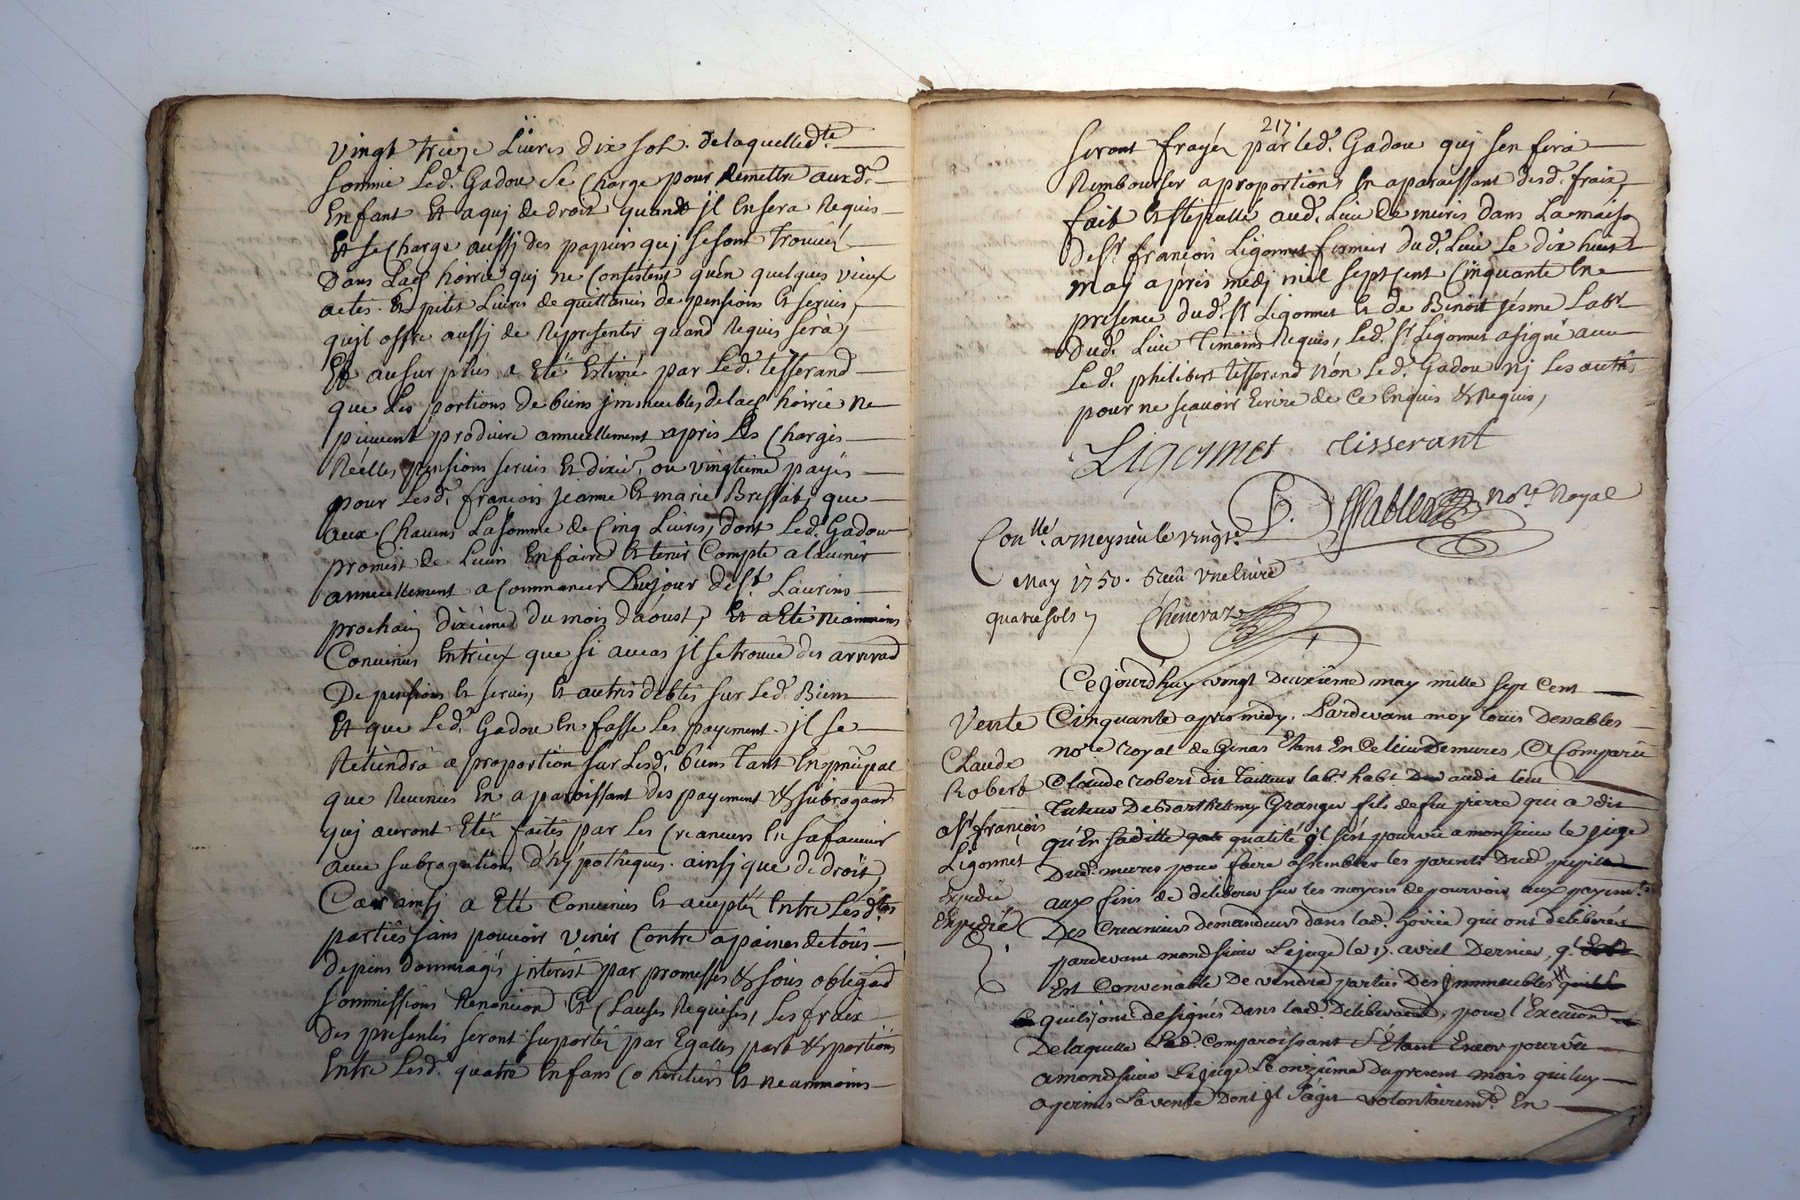 vingt treize Livres dix sols. de laquelled.te
somme Led.t Gadou se Charge pour Remettre auxd.
Enfant Et a quj de droit quand jl En sera Requis
Et se Charge aussj des papiers quj se sont Trouvés
Dans Lad. hoirie quj ne Consistent qu'en quelques vieux
actes. Et petits Livres de quittances de pensions Et servis,
qu'jl offre aussj de Representer quand Requis sera,
Et au sur plus a Eté Estimé par Led.t tesserand
que Les portions de biens jmmeubles de lad. hoirie ne
peuvent produire annuellement apres Les Charges
Réelles, pensions servis Et dixie, ou vingtieme payés
pour Lesd. francois jeanne Et marie Brissat, que
aux Chacuns La somme de Cinq Livres, dont Led. Gadou
promet de Leurs En faire Et tenir Compte a Lavenir
annuellement a Commancer Du jour de S.t Laurens
prochain dixieme du mois daoust, Et a Eté Neanmoins
Convenus Entreux que si au cas jl se trouve des arrerad
De pensions Et servis, Et autres debtes sur Led. Biens
Et que Led. Gadou En fasse Les payement. jl se
Retiendra a proportion sur Lesd. biens Tant En principal
que Revenus En aparoissant des payement & subrogaons
quj auront Etés faites par Les Creanciers En sa faveur
avec subrogations d'hypotheques. ainsj que de droit,
Car ainsj a Eté Convenus Et accepté Entre Lesd.tes
parties sans pouvoir venir Contre a paines de tous
depens dommages jnterest par promesses & sous obligaõ
sommissions Renonciaõ Et Clauses Requises, Les fraix
des presentes seront suportés par Egalles part & portions
Entre Lesd. quatre Enfans Co heritiers Et neanmoins
217.
seront frayés par led. Gadou quj sen fera
Rembourser a proportions En aparaissant desd. fraix,
fait Et stipullé aud. Lieu de mures dans La maison
de S.r françois Ligonnet fermier dud. Lieu Le dix huit
may apres midj mil sept Cent Cinquante En
presence dud. S.r Ligonnet Et de Benoit jesme Labr
dud. Lieu Temoins Requis, Led. S.r Ligonnet a signé avec
Led. philibert tesserand Non Led. Gadou nj Les autres
pour ne sçavoir Ecrire de Ce Enquis & Requis,
Ligonnet tisserant
Desables no.re Royal
Con.llé. a meysieu le vingt
May 1750. Receu une livre
quatre sols Chenevaz
Ce jourdhuy vingt Deuxiéme may mille sept Cent
Cinquante apres midy. Pardevant moy louis Desables
no.re royal de Genas Etant En Ce lieu De mures, a Comparu
Claude robert dit Tailleur labr habt audit lieu
Tuteur De Barthelemy Granger fils de feu pierre qui a dit
qu'En sa ditte qualité jl s'est pourvu a monsieur le juge
Dud. mures pour faire assembler les parents Dud. pupille
aux fins de deliberer sur les moyens de pourvoir aux payem.ts
Des Creanciers demandeurs dans lad. hoirie qui ont deliberés
pardevant mondsieur Le juge le 17. avril Dernier, q.
Est Convenable De vendre parties Des Jmmeubles
qu'ils ont designés Dans lad. Deliberaon, pour l'Execuon
De laquelle Led. Comparoissant s'Etant Encor pourvu
a mondsieur Le juge Le onziéme Du present mois qui luy
a permis La vente Dont Jl s'agit volontairem.t En
Vente
Claude
Robert
a S.r françois
Ligonnet
Expedié
Expedié